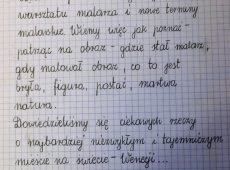 warsztatu malarza i nowe terminy
malarskie. Wiemy więc jak poznać -
patrząc na obraz - gdzie stał malarz,
gdy malował obraz, co to jest
bryła, figura, postać, martwa
natura.
Dowiedzieliśmy się ciekawych rzeczy
o najbardziej niezwykłym i tajemniczym
mieście na świecie - Wenecji...